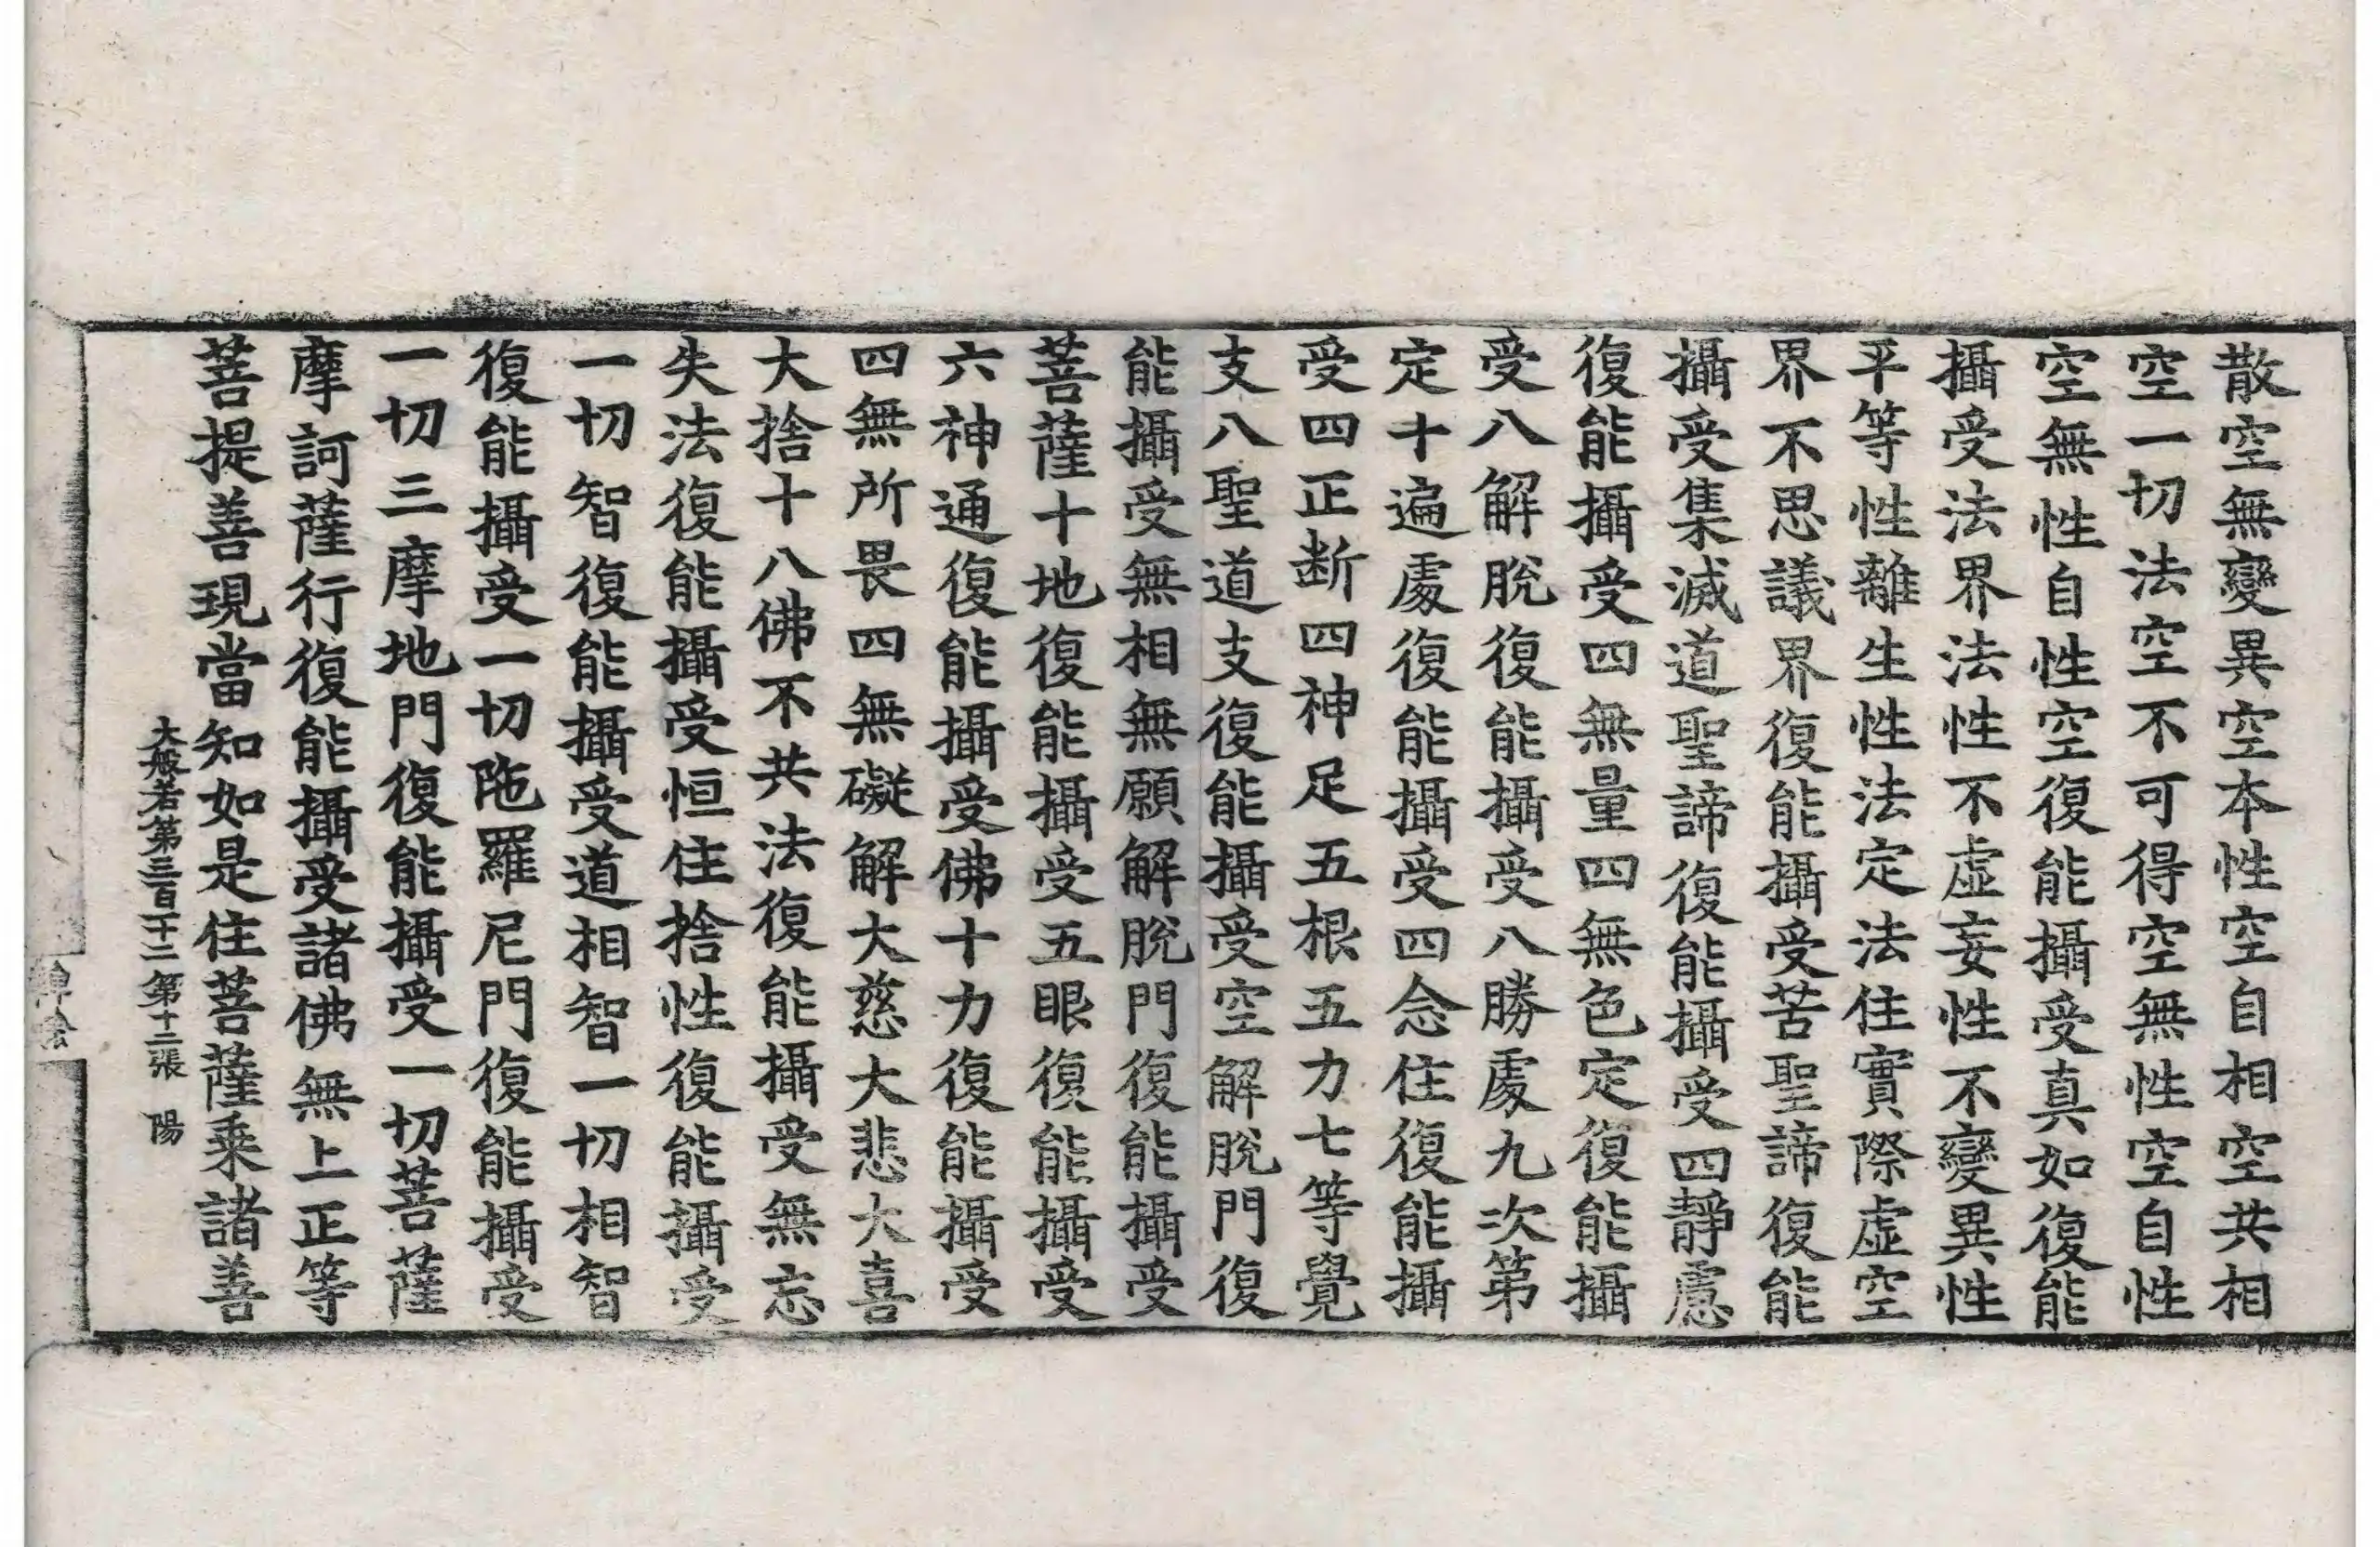 散空無變異空本性空自相空共相
空一切法空不可得空無性空自性
空無性自性空復能攝受真如復能
攝受法界法性不虛妄性不變異性
平等性離生性法定法住實際虛空
界不思議界復能攝受苦聖諦復能
攝受集滅道聖諦復能攝受四靜慮
復能攝受四無量四無色定復能攝
受八解脫復能攝受八勝處九次第
定十遍處復能攝受四念住復能攝
受四正斷四神足五根五力七等覺
支八聖道支復能攝受空解脫門復
能攝受無相無願解脫門復能攝受
菩薩十地復能攝受五眼復能攝受
六神通復能攝受佛十力復能攝受
四無所畏四無礙解大慈大悲大喜
大捨十八佛不共法復能攝受無忘
失法復能攝受恒住捨性復能攝受
一切智復能攝受道相智一切相智
復能攝受一切陁羅尼門復能攝受
一切三摩地門復能攝受一切菩薩
摩訶薩行復能攝受諸佛無上正等
菩提善現當知如是住菩薩乘諸善
大般若第三百二十二 第十二張 陽